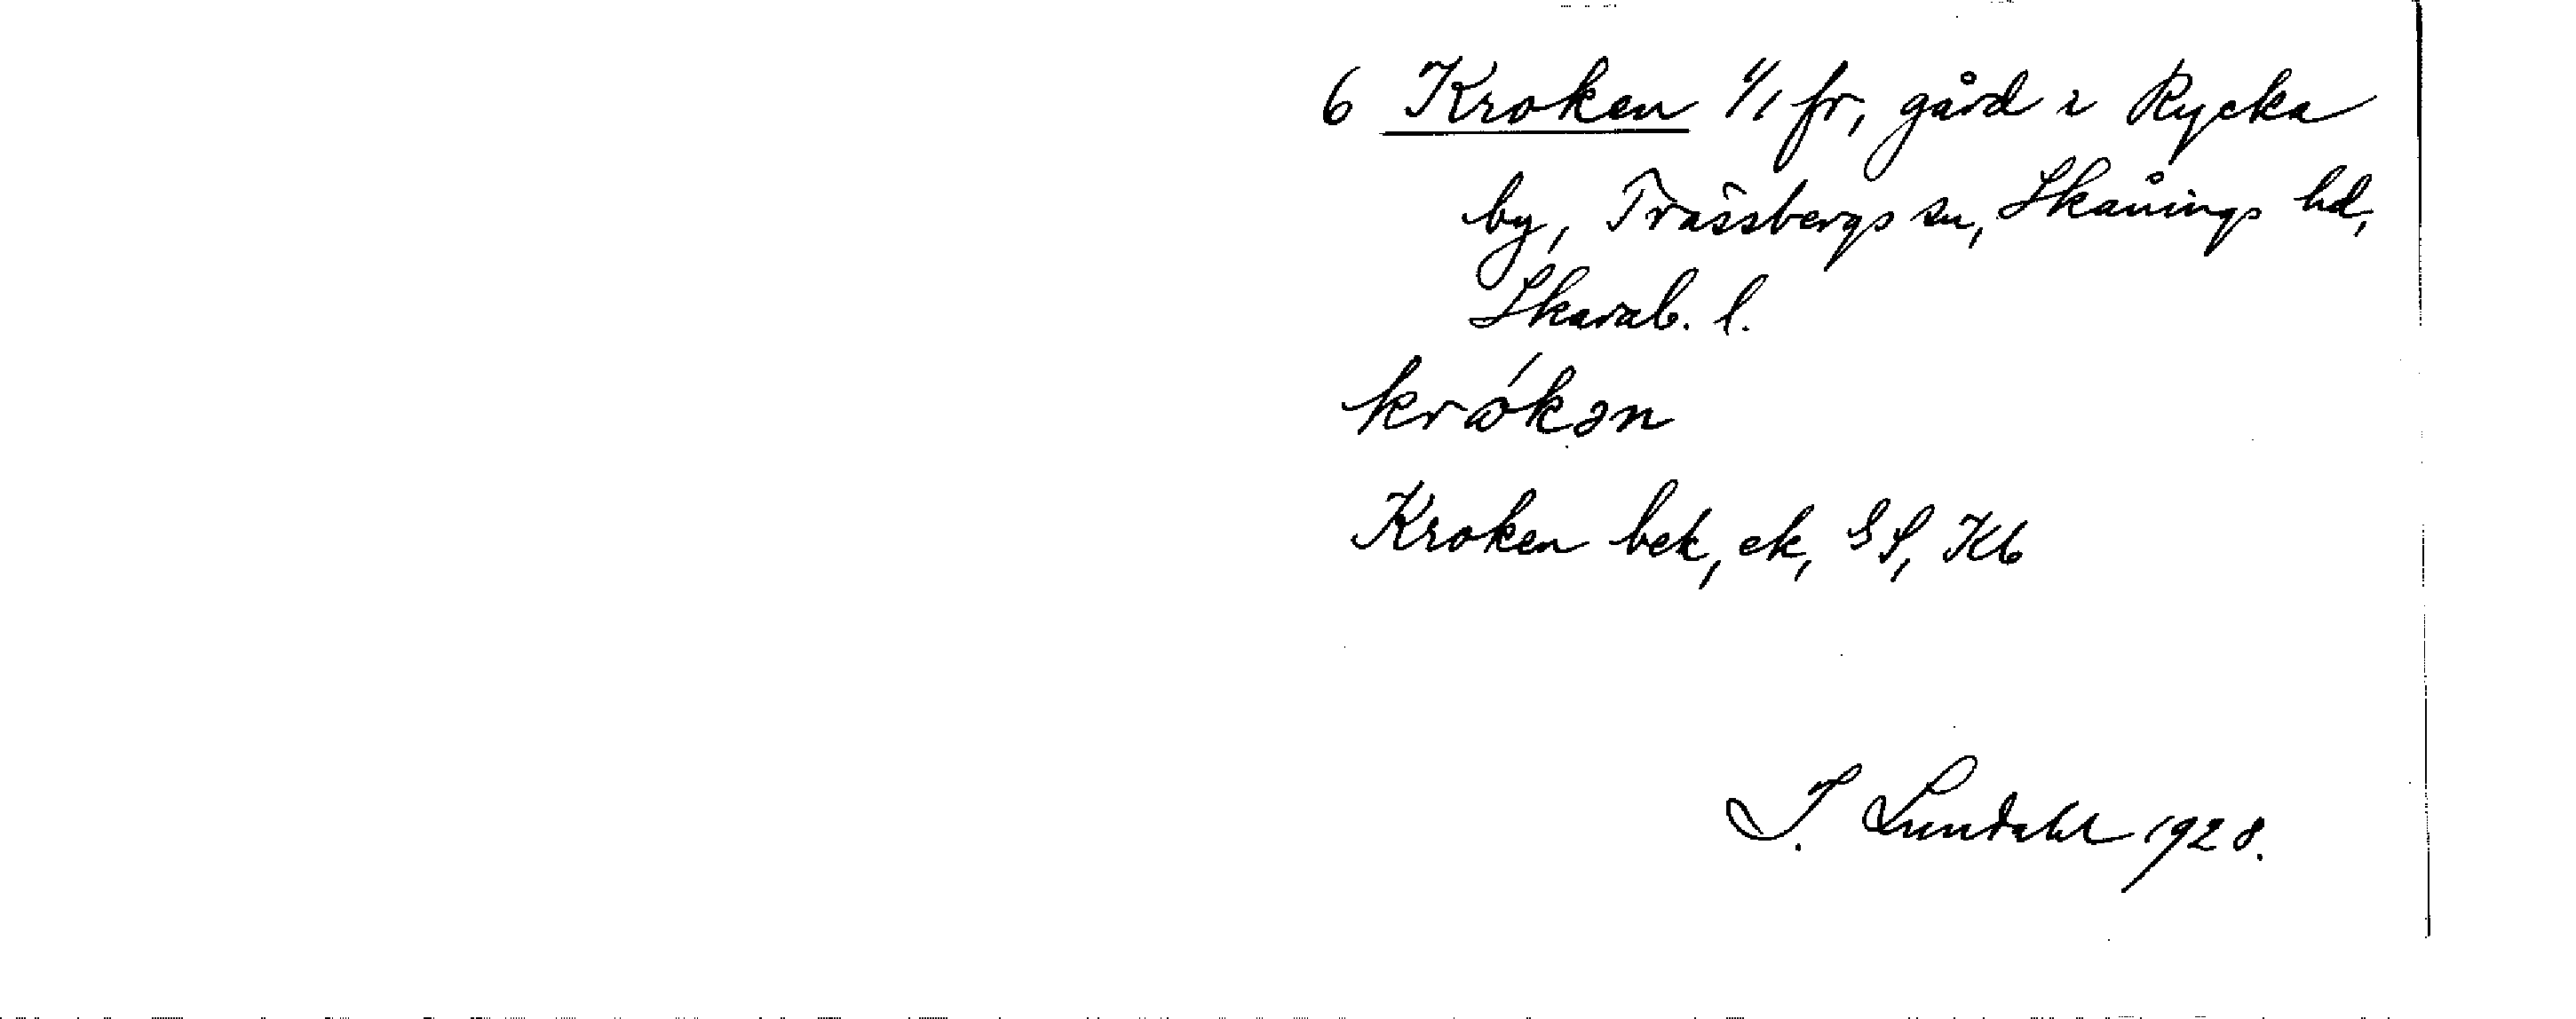 6 Kroken 1/1 fr, gård i Rycka
by, Trässbergs sn, Skånings hd,
Skarab. l.
krókən
Kroken bek, ek, GS, Kb
I. Lundahl 1928.